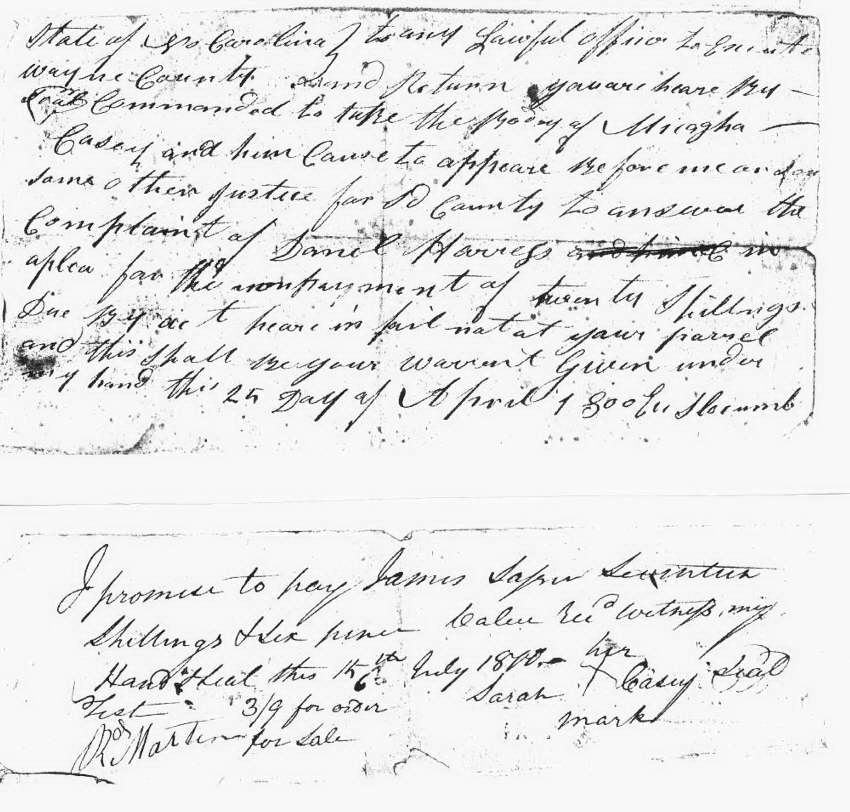 State of No Carolina } to any Lawful officer to Execute
Wayne County } and Return you are heare By
Commanded to take the Body of Micagha
Casey and him Cause to appeare Before me or
some other justice for Sd County to answer the
Complaint of Daniel Harress in
a plea for the nonpayment of twenty Shillings
Due By act heare in fail not at your parrel
and this Shall Be your Warrent Given under
my hand this 25 Day of April 1800 Slocumb
I promise to pay James Seventeen
Shillings & Six pence Value Recd Witness my
Hand & Seal this 15th July
Test 3/9 for order Sarah her X mark Casey Seal
Rd Martin for Sale